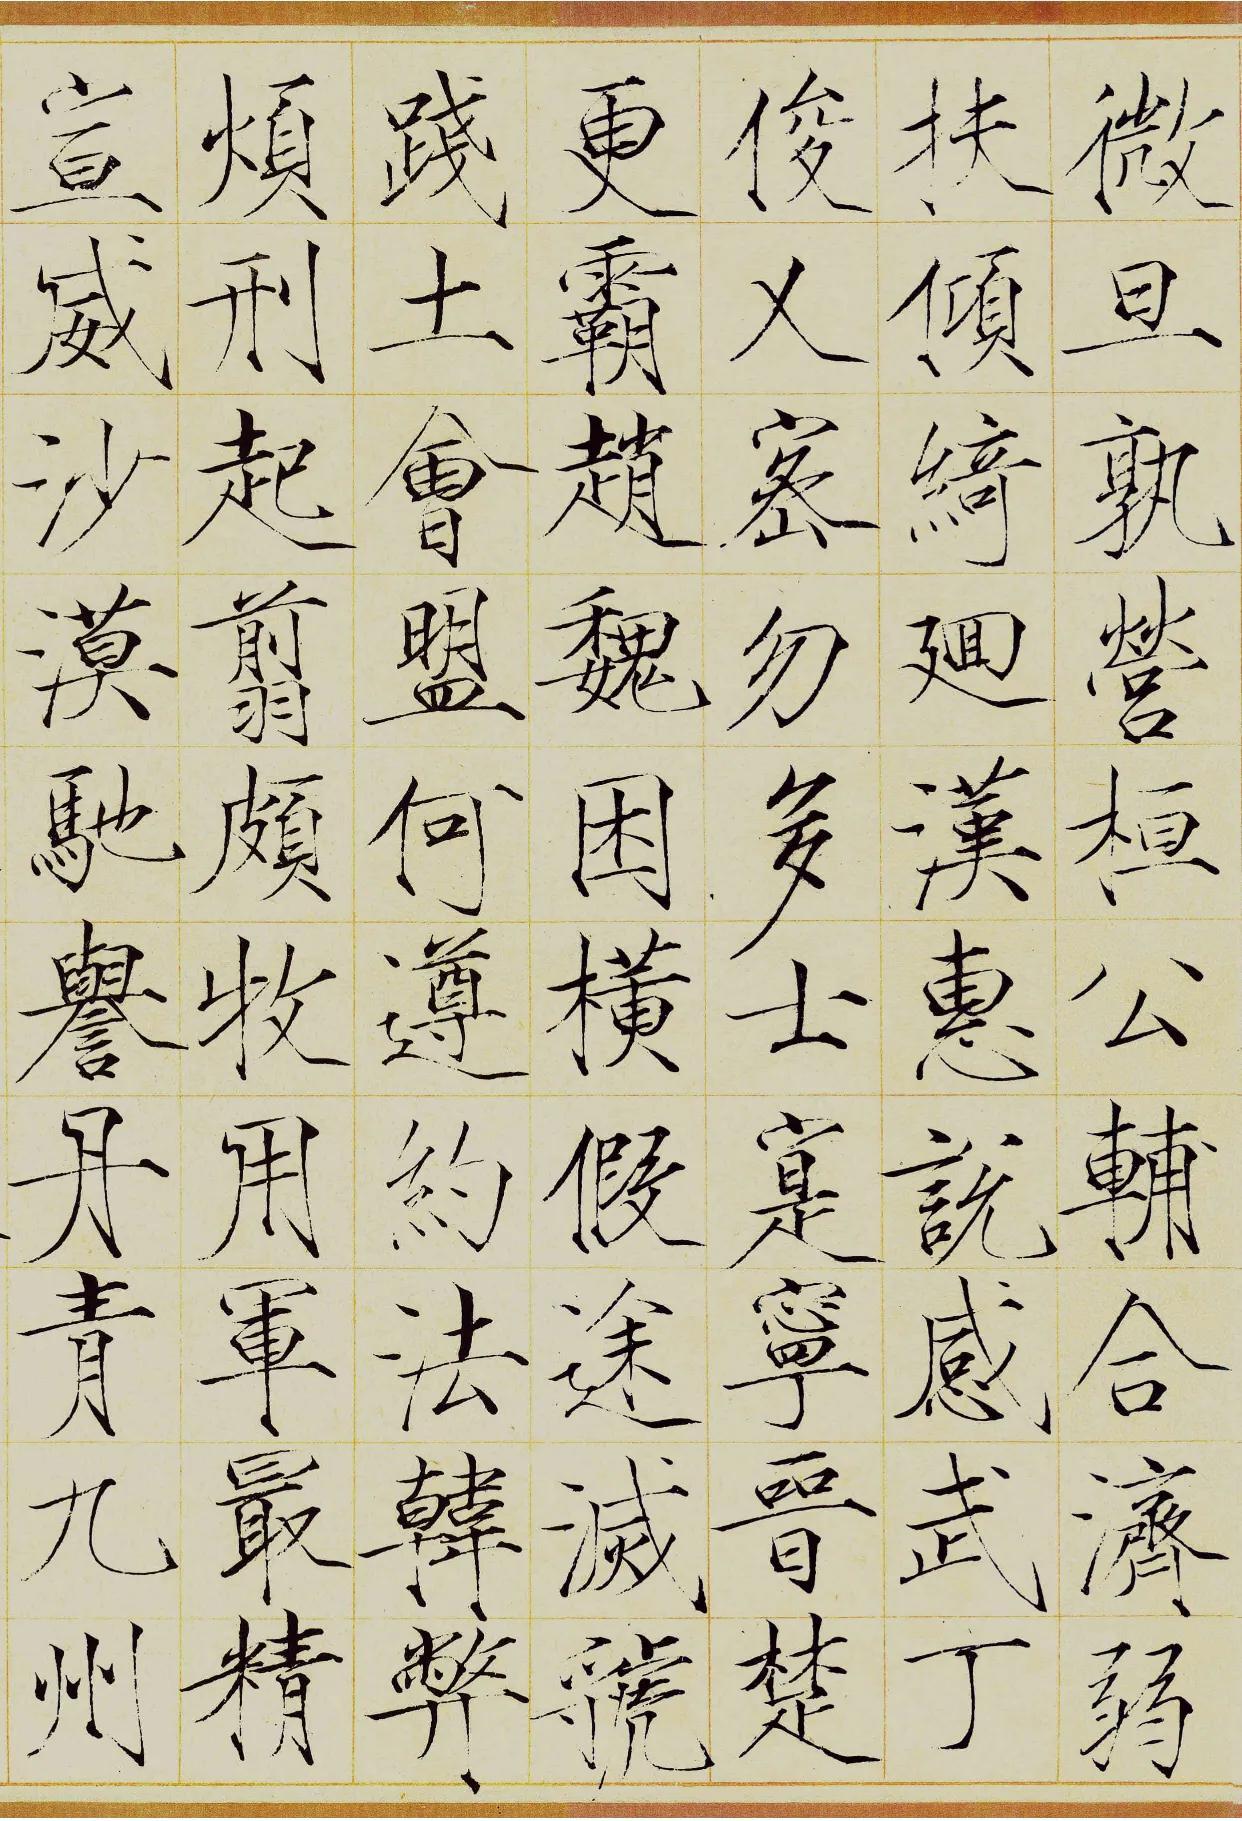 微旦孰營桓公輔合濟弱
扶傾綺廻漢惠說感武丁
俊乂密勿多士寔寧晉楚
更霸趙魏困橫假途滅虢
踐土會盟何遵約法韓弊
煩刑起翦頗牧用軍最精
宣威沙漠馳譽丹青九州